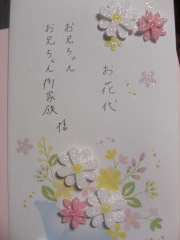 お花代
お兄ちゃん
お兄ちゃん御家族
様